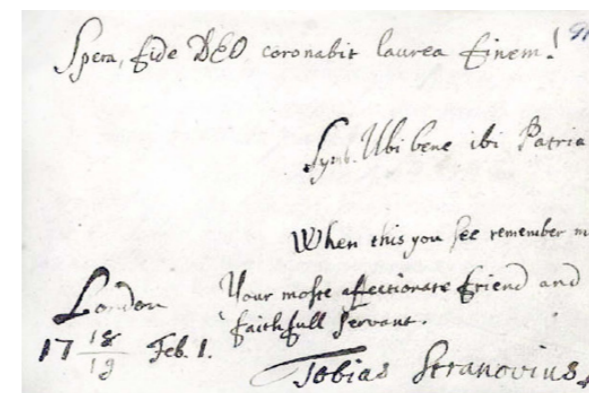 Spera, fide DEO coronabit laurea finem!
Symb. Ubi bene ibi Patria
When this you see remember m
London Your moste affectionate friend and
faithfull servant.
17 18/19 Feb. 1.
Tobias Stranovius